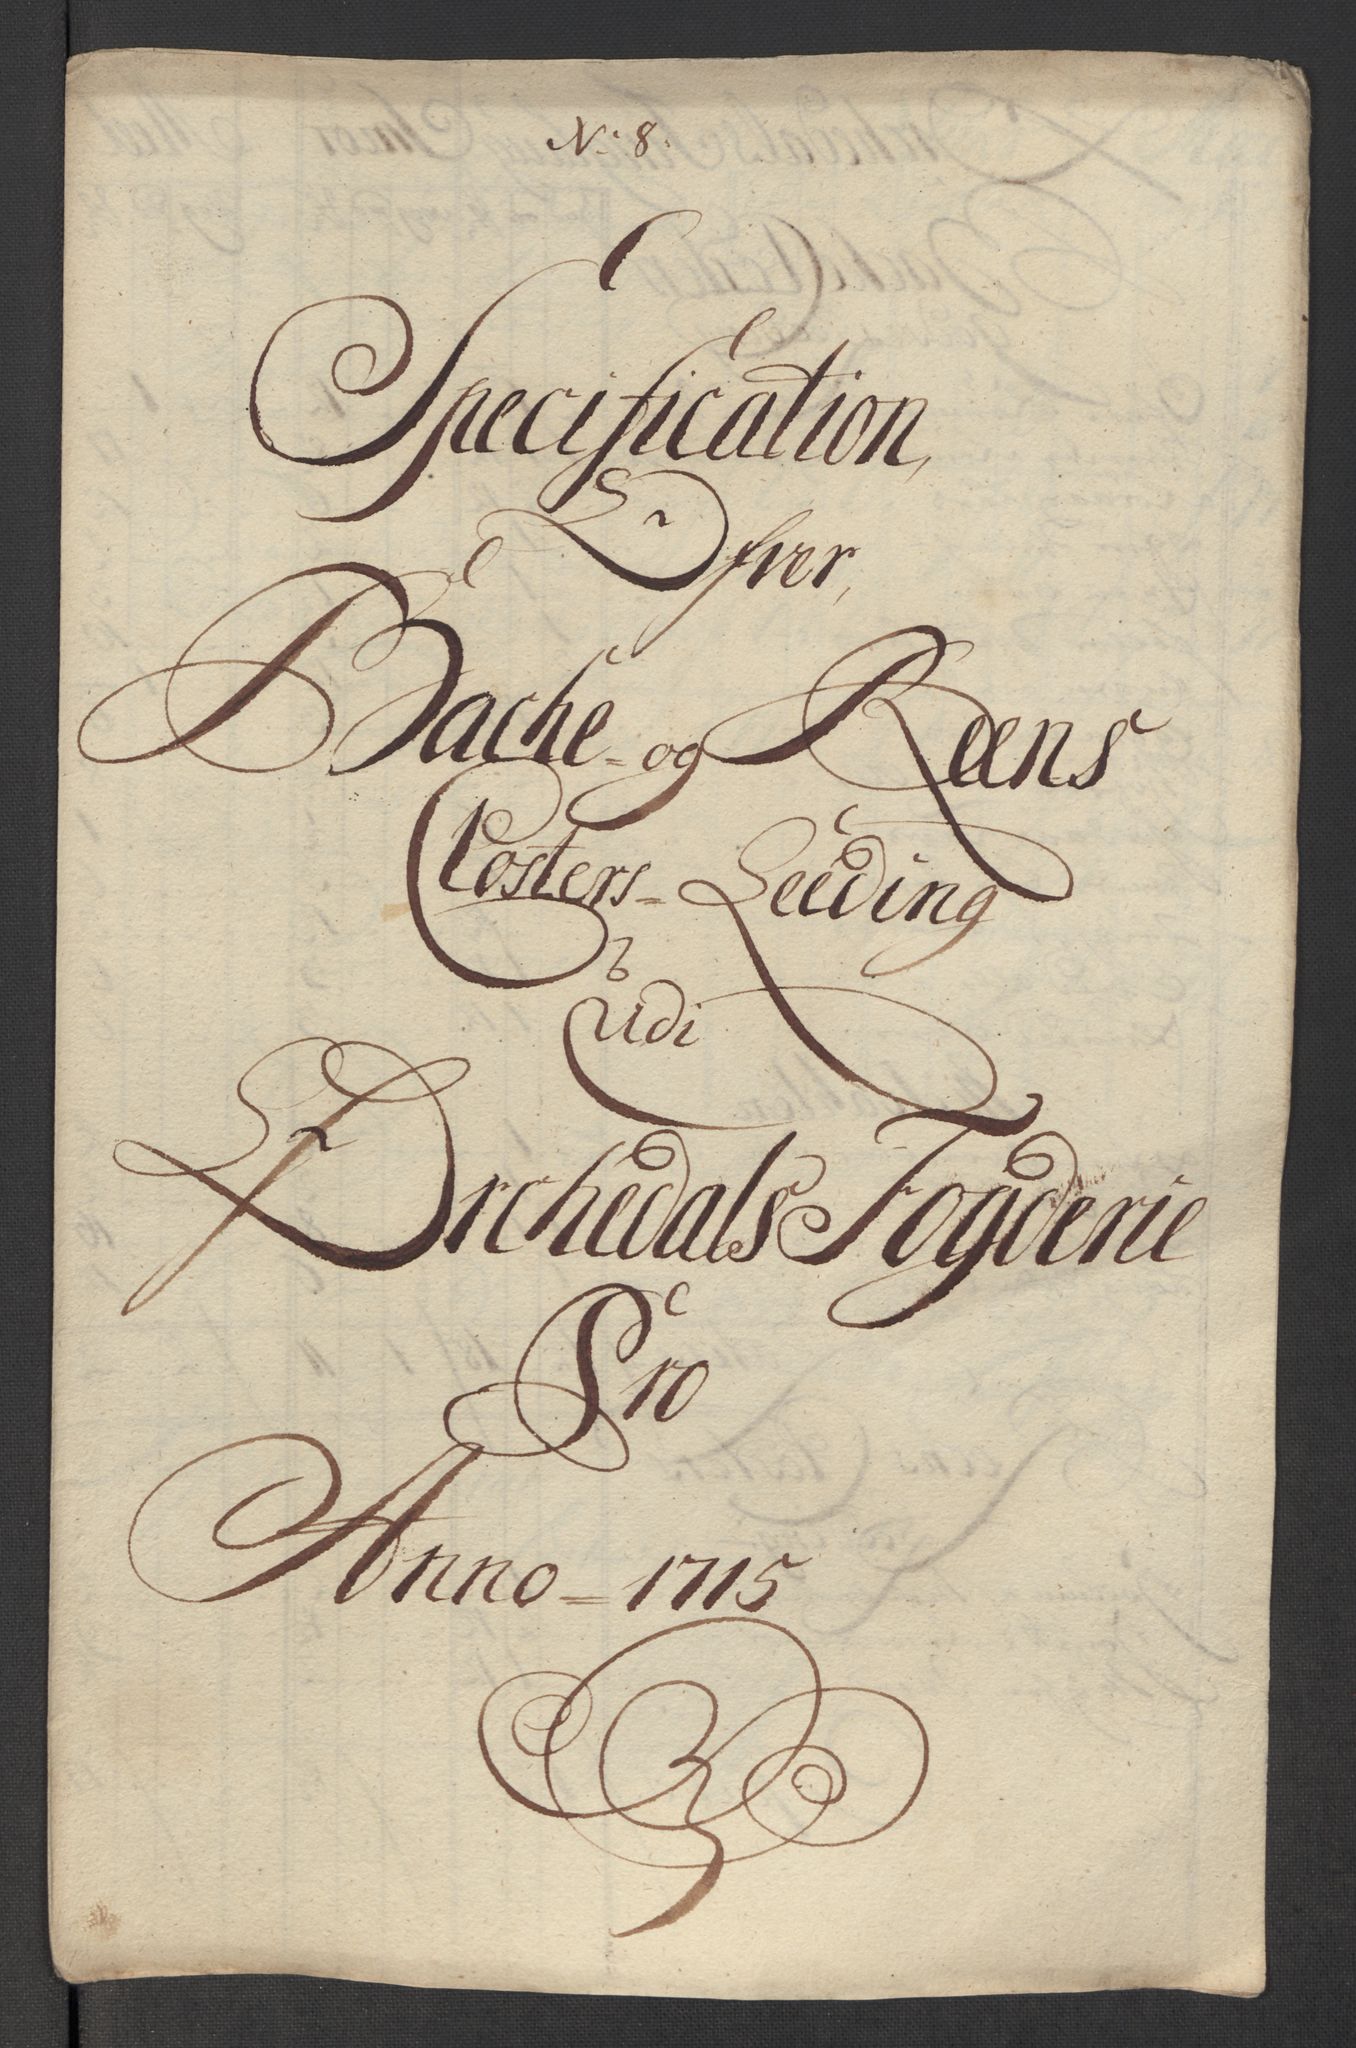 No: 8.
Specification,
Ofver,
Bache- og Reens
Closters- Leeding
Udi
Orchedals Fogderie
Pro
Anno = 1715